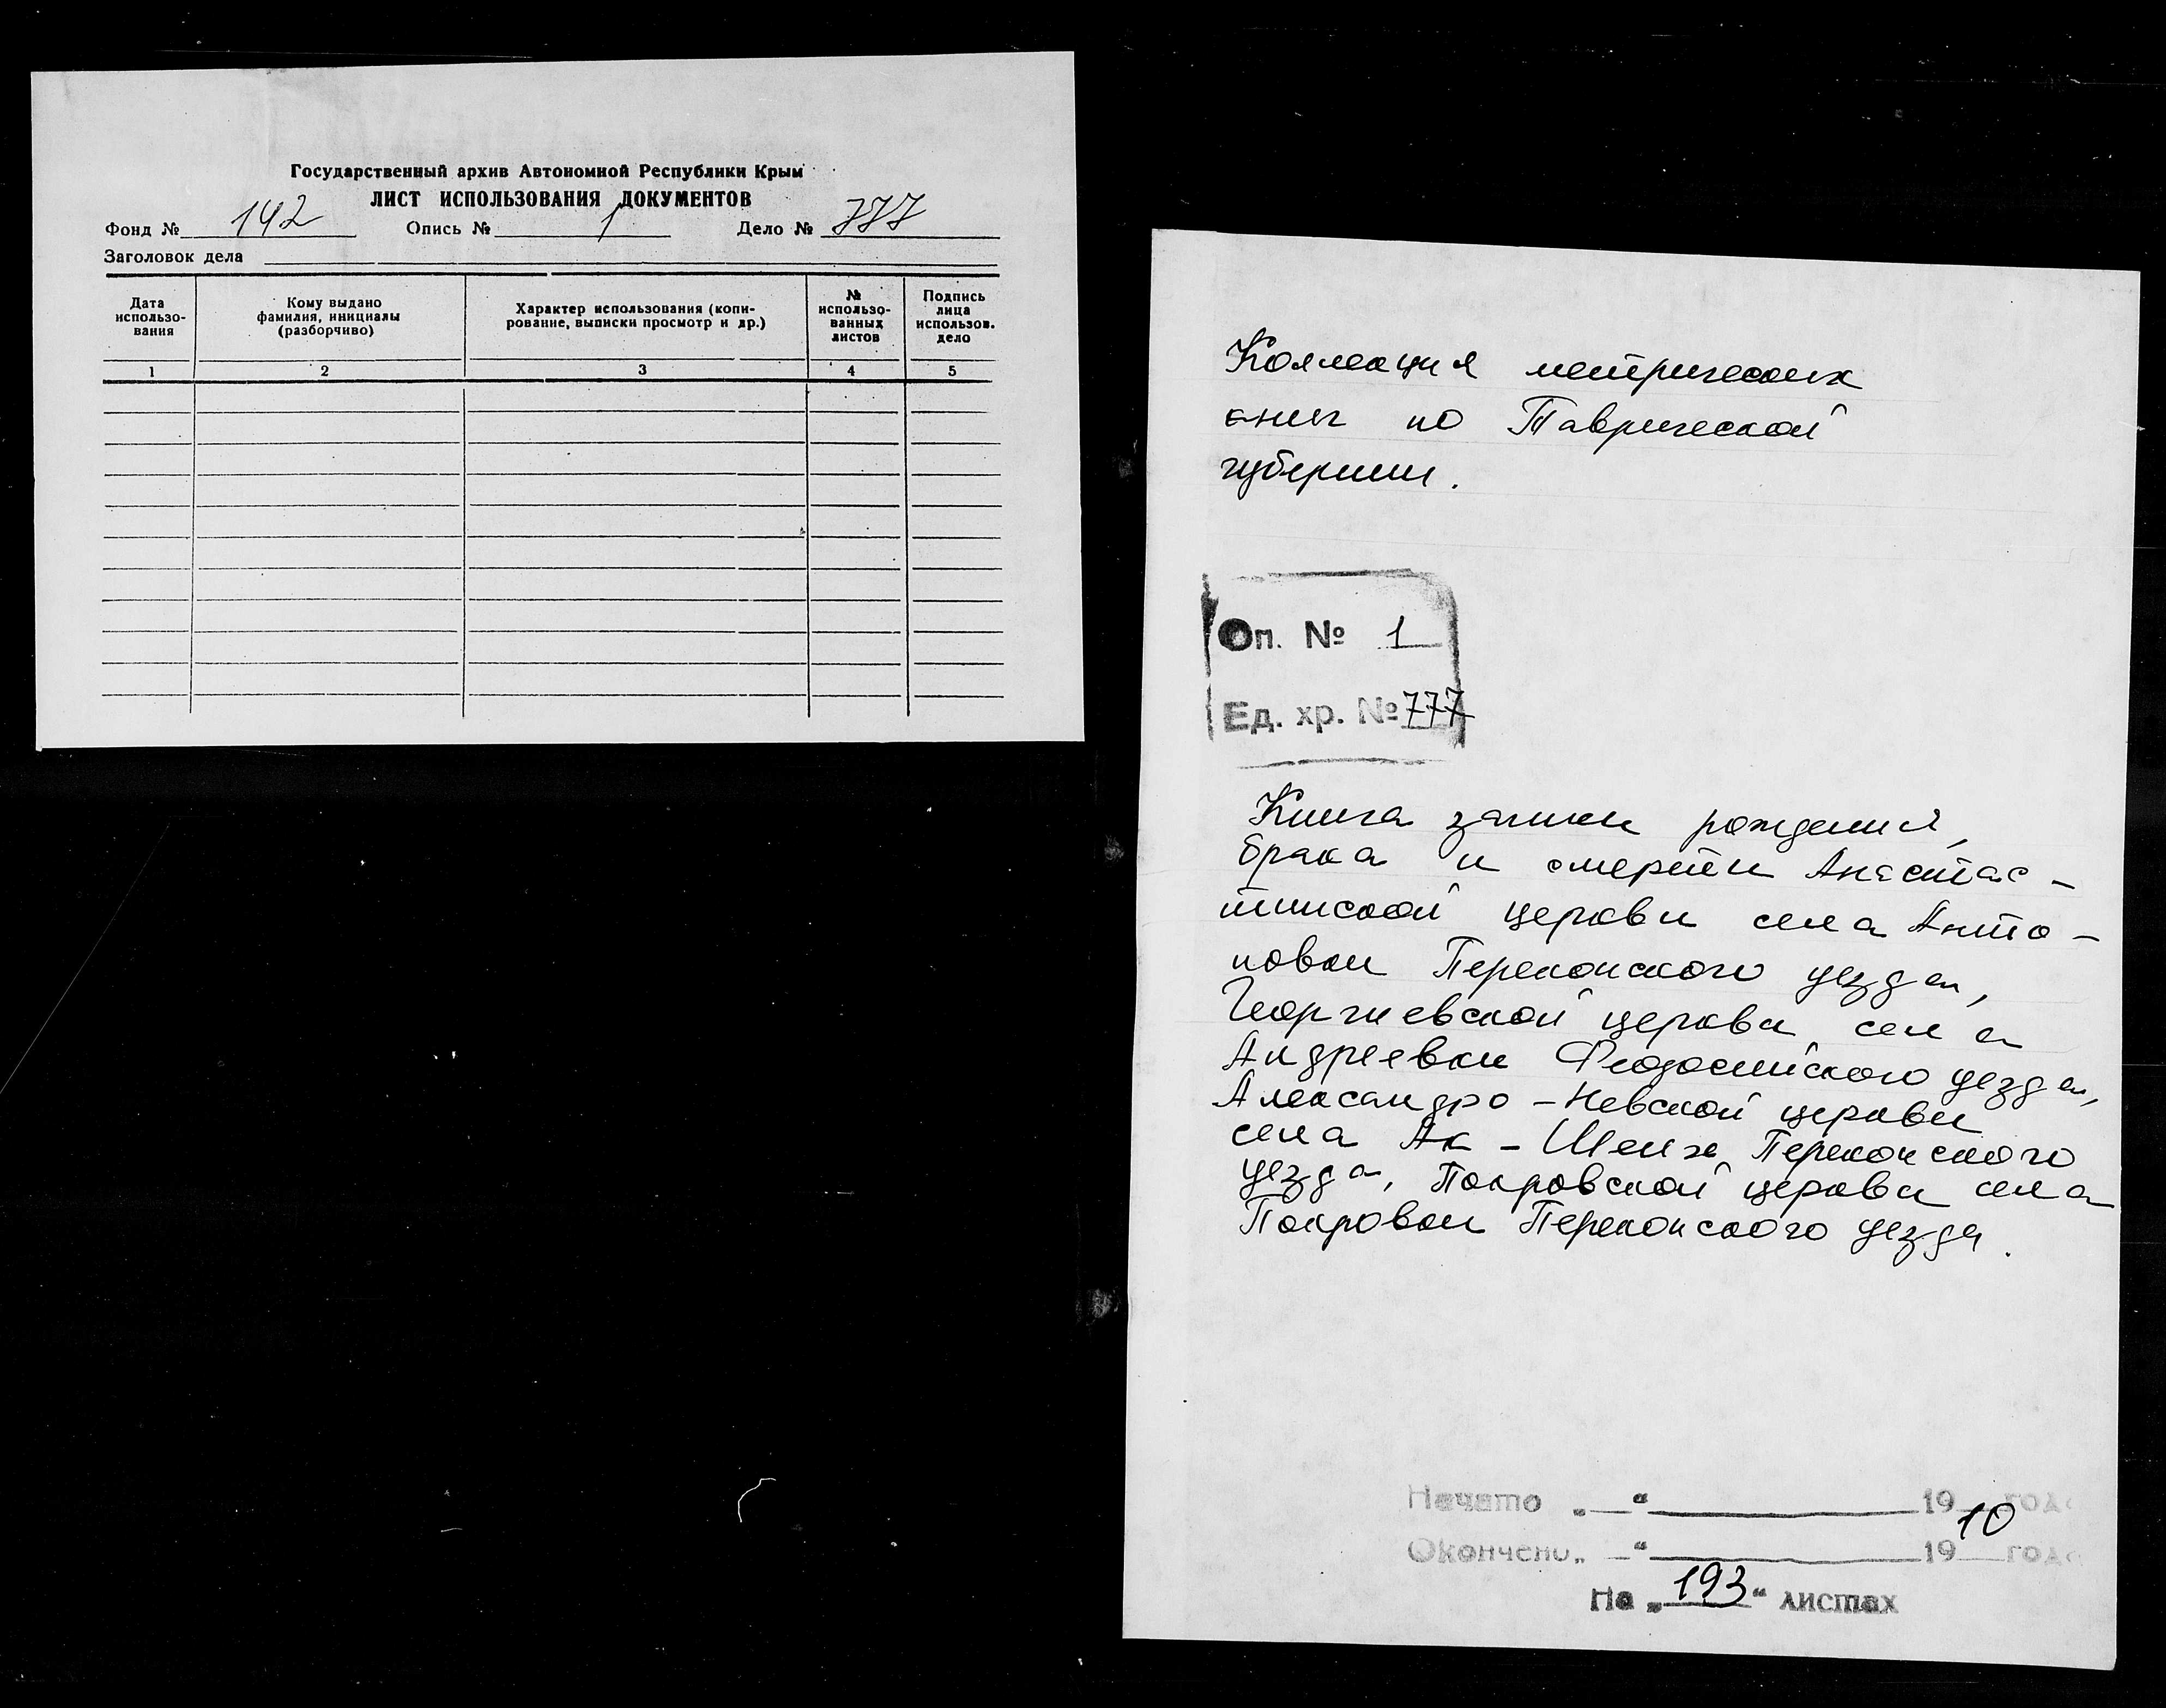 Государственный архив Автономной Республики Крым
ЛИСТ ИСПОЛЬЗОВАНИЯ ДОКУМЕНТОВ
Фонд № 142 Опись № 1 Дело № 777
Заголовок дела
Дата использо-вания
Кому выдано фамилия, инициалы (разборчиво)
Характер использования (копи-рование, выписки просмотр и др.)
№ использо-ванных листов
Подпись лица использов. дело
1 2 3 4 5
Коллекция метрических
книг по Таврической
губернии.
Оп. № 1
Ед. хр. № 777
Книга записи рождения,
брака и смерти Анастас-
тинской церкви села Анто-
новки Перекопского уезда,
Георгиевской церкви села
Андреевки Феодосийского уезда,
Александро-Невской церкви
села Ак-Шейх Перекопского
уезда, Покровской церкви села
Покровки Перекопского уезда.
Начато „ “ 19 года
10
Окончено „ “ 19 года
На „193“ листах